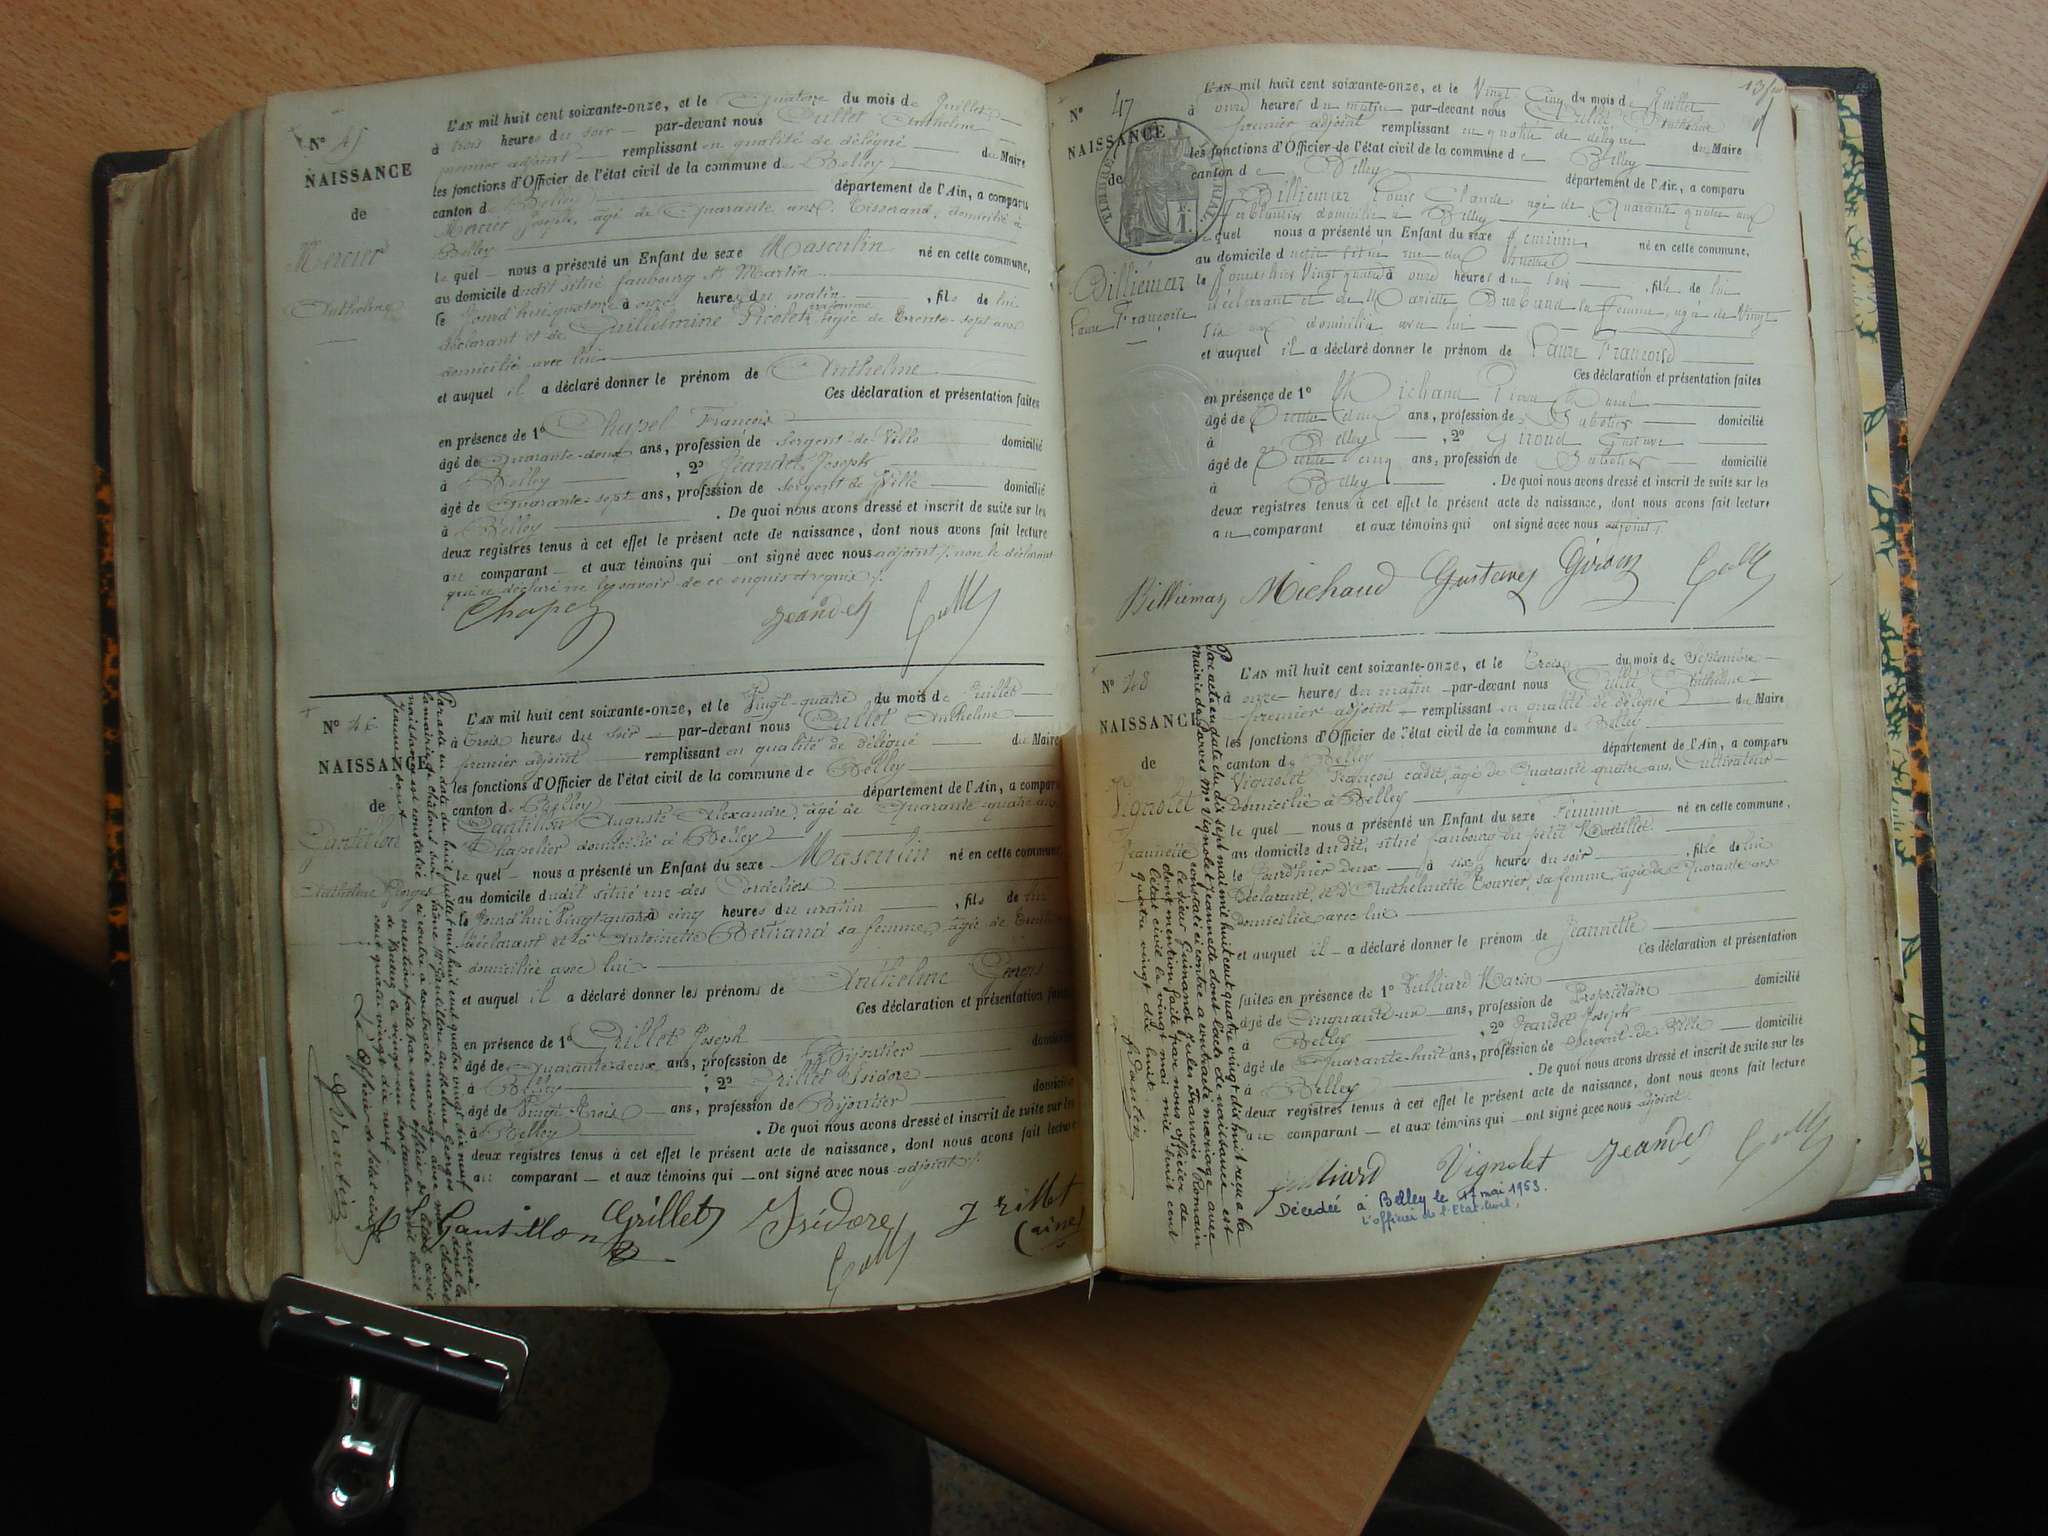 N° 45
NAISSANCE
de
Mercier
Anthelme
L'AN mil huit cent soixante-onze, et le Quatorze du mois de Juillet
à trois heures du soir par-devant nous Gullet Anthelme
premier adjoint remplissant en qualité de délégué du Maire
les fonctions d'Officier de l'état civil de la commune de Belley
canton de Belley département de l'Ain, a comparu
Mercier Joseph, âgé de Quarante ans, Tisserand, domicilié à
Belley
le quel nous a présenté un Enfant du sexe Masculin né en cette commune,
au domicile dudit situé faubourg St Martin
le jourd'hui quatorze à onze heures du matin , fils de lui
déclarant et de Guillelmine Picolet sa femme âgée de Trente-sept ans
domicilié avec lui
et auquel il a déclaré donner le prénom de Anthelme
Ces déclaration et présentation faites
en présence de 1° Chapel François
âgé de Quarante-deux ans, profession de sergent-de-Ville domicilié
à Belley , 2° Jeandet Joseph
âgé de Quarante-sept ans, profession de sergent de Ville domicilié
à Belley . De quoi nous avons dressé et inscrit de suite sur les
deux registres tenus à cet effet le présent acte de naissance, dont nous avons fait lecture
au comparant et aux témoins qui ont signé avec nous adjoint, non le déclarant
qui a déclaré ne le savoir de ce enquis et requis
Chapel Jeandet Gullet
N° 46
NAISSANCE
de
Gantillon
Anthelme Georges
L'AN mil huit cent soixante-onze, et le Vingt-quatre du mois de Juillet
à Trois heures du soir par-devant nous Gullet Anthelme
premier adjoint remplissant en qualité de délégué du Maire
les fonctions d'Officier de l'état civil de la commune de Belley
canton de Belley département de l'Ain, a comparu
Gantillon Auguste Alexandre, âgé de Quarante-quatre ans
Chapelier domicilié à Belley
le quel nous a présenté un Enfant du sexe Masculin né en cette commune,
au domicile dudit situé rue des Cordeliers
le jourd'hui Vingt-quatre à cinq heures du matin , fils de lui
déclarant et de Antoinette Bertrand sa femme, âgée de
domiciliée avec lui
et auquel il a déclaré donner les prénoms de Anthelme Georges
Ces déclaration et présentation faites
en présence de 1° Grillet Joseph
âgé de Quarante-deux ans, profession de Bijoutier domicilié
à Belley , 2° Grillet Isidore
âgé de Vingt-Trois ans, profession de Bijoutier domicilié
à Belley . De quoi nous avons dressé et inscrit de suite sur les
deux registres tenus à cet effet le présent acte de naissance, dont nous avons fait lecture
au comparant et aux témoins qui ont signé avec nous adjoint
Gantillon Grillet Isidore Grillet
(ainé)
Gullet
Par acte en date du huit juillet mil huit cent quatre vingt dix neuf
la mairie de châlons sur Saône Mr Gantillon anthelme Georges dont la
naissance est constatée ci contre a contracté mariage avec
Jeanne dont mention faite par nous officier de l'état civil
de Belley le vingt-un septembre mil huit
cent quatre vingt dix neuf
L'Officier de l'état civil
N° 47
NAISSANCE
de
TIMBRE IMPERIAL
1 F.
Billiémaz
Laure Françoise
L'AN mil huit cent soixante-onze, et le Vingt Cinq du mois de Juillet
à onze heures du matin par-devant nous Gullet Anthelme
premier adjoint remplissant en qualité de délégué du Maire
les fonctions d'Officier de l'état civil de la commune de Belley
canton de Belley département de l'Ain, a comparu
Billiémaz Louis Claude âgé de Quarante quatre ans
Ferblantier domicilié à Belley
le quel nous a présenté un Enfant du sexe féminin né en cette commune,
au domicile dudit situé rue des
le jour d'hier Vingt quatre à onze heures du soir , fille de lui
déclarant et de Mariette Durband sa femme, âgée de Vingt
six ans domicilié avec lui
et auquel il a déclaré donner le prénom de Laure Françoise
Ces déclaration et présentation faites
en présence de 1° Michaud
âgé de Trente deux ans, profession de Sabotier domicilié
à Belley , 2° Giroud Gustave
âgé de Trente cinq ans, profession de Sabotier domicilié
à Belley . De quoi nous avons dressé et inscrit de suite sur les
deux registres tenus à cet effet le présent acte de naissance, dont nous avons fait lecture
au comparant et aux témoins qui ont signé avec nous adjoint
Billiemaz Michaud Gustave Giroud Gullet
N° 48
NAISSANCE
de
Vignolet
Jeannette
L'AN mil huit cent soixante-onze, et le Trois du mois de Septembre
à onze heures du matin par-devant nous Gullet Anthelme
premier adjoint remplissant en qualité de délégué du Maire
les fonctions d'Officier de l'état civil de la commune de Belley
canton de Belley département de l'Ain, a comparu
Vignolet François cadet, âgé de Quarante quatre ans, Cultivateur
Domicilié à Belley
le quel nous a présenté un Enfant du sexe Féminin né en cette commune,
au domicile dudit, situé faubourg du petit Rontillet
le jourd'hier deux à six heures du soir , fille de lui
Déclarant, et d'Anthelmette Couvier, sa femme, âgée de Quarante ans
Domiciliée avec lui
et auquel il a déclaré donner le prénom de Jeannette
Ces déclaration et présentation
faites en présence de 1° Vulliard Marin domicilié
âgé de Cinquante-un ans, profession de Propriétaire
à Belley , 2° Jeandet Joseph
âgé de Quarante-huit ans, profession de Sergent-de-Ville domicilié
à Belley . De quoi nous avons dressé et inscrit de suite sur les
deux registres tenus à cet effet le présent acte de naissance, dont nous avons fait lecture
au comparant et aux témoins qui ont signé avec nous adjoint
Vulliard Vignolet Jeandet Gullet
Décédée à Belley le 17 mai 1953.
L'officier de l'Etat-Civil,
Par acte en date du dix sept mai mil huit cent quatre vingt dix huit reçu à la
mairie de Parves Mlle Vignolet Jeannette dont l'acte de naissance est
constaté ci contre a contracté mariage avec
le sieur Guinand Jules François Romain
dont mention faite par nous officier de
l'état civil le vingt mai mil huit cent
quatre vingt dix huit